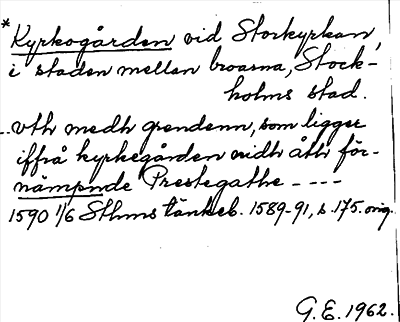 * Kyrkogården vid Storkyrkan,
i staden mellan broarna, Stock-
holms stad.
..vth medh grendenn, som ligger
iffrå kyrkegården nidh åth för-
nämpnde Prestegathe - - - -
1590 1/6 Sthms tänkeb. 1589-91, s. 175. orig.
G.E. 1962.